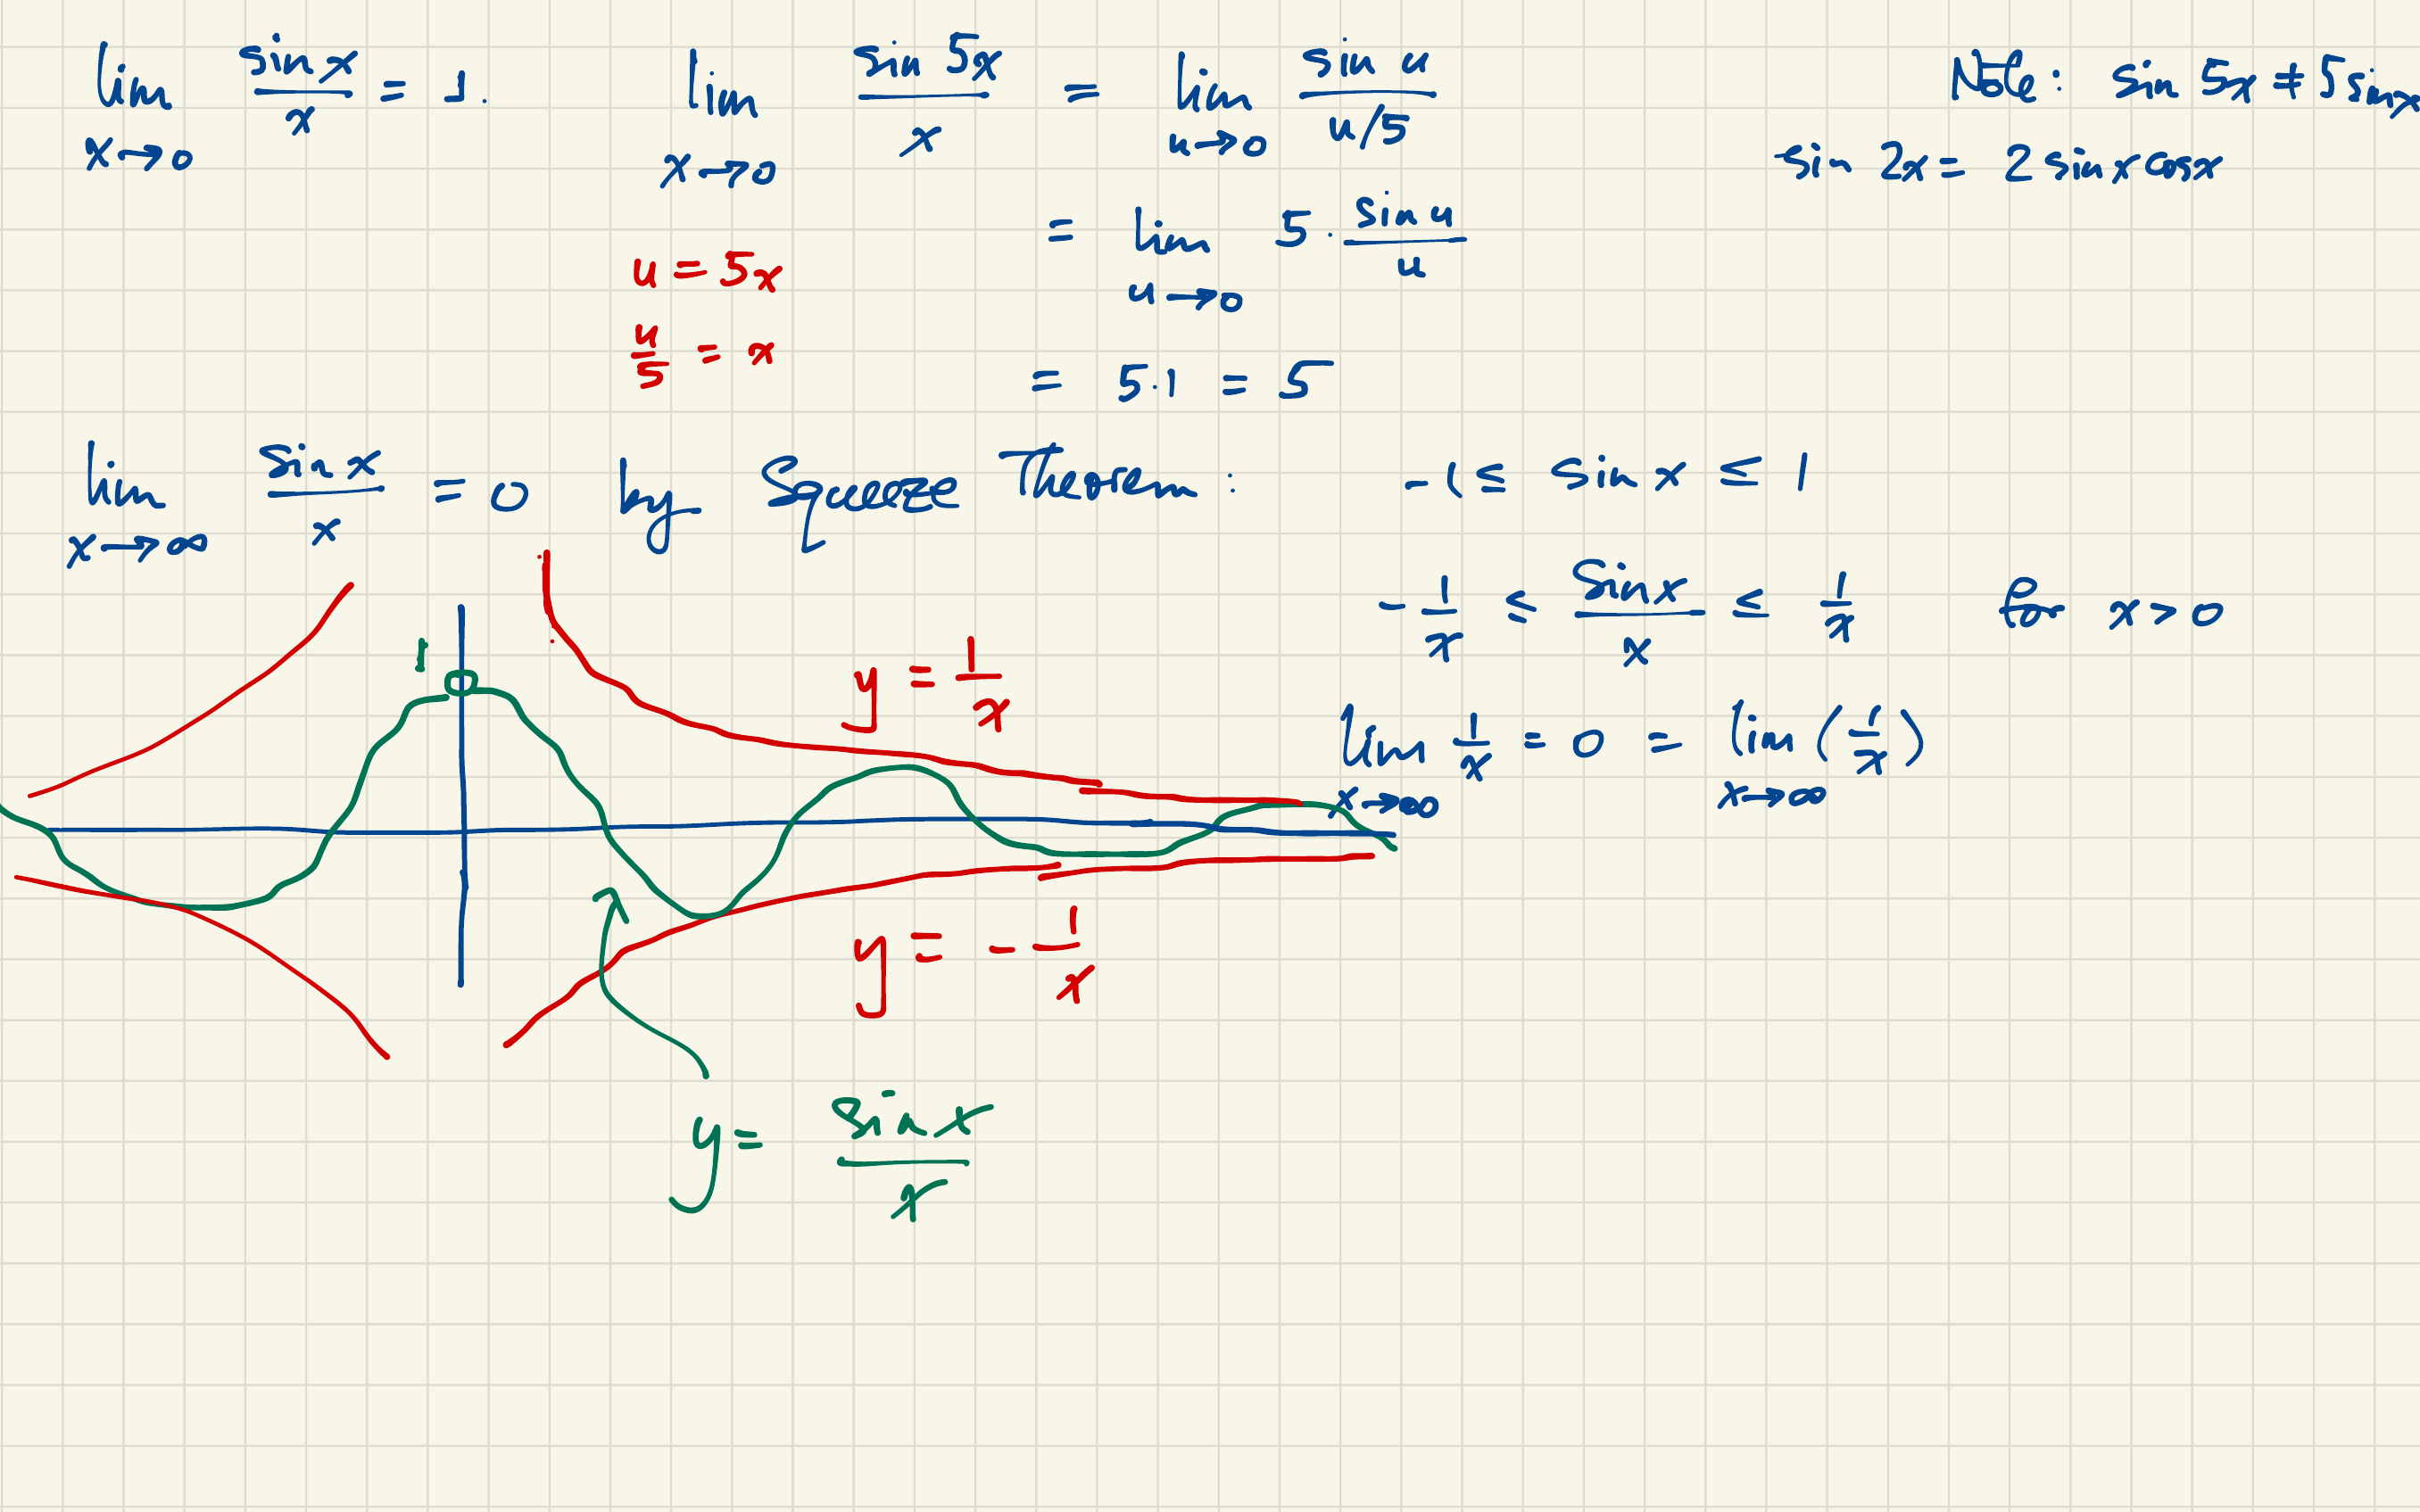 lim x→0 sin x / x = 1.
lim x→0 sin 5x / x = lim u→0 sin u / u/5
= lim u→0 5 · sin u / u
= 5·1 = 5
u = 5x
u/5 = x
Note: sin 5x ≠ 5 sin x
sin 2x = 2 sin x cos x
lim x→∞ sin x / x = 0 by Squeeze Theorem: -1 ≤ sin x ≤ 1
-1/x ≤ sin x / x ≤ 1/x for x > 0
lim x→∞ 1/x = 0 = lim x→∞ (1/x)
1
y = 1/x
y = - 1/x
y = sin x / x